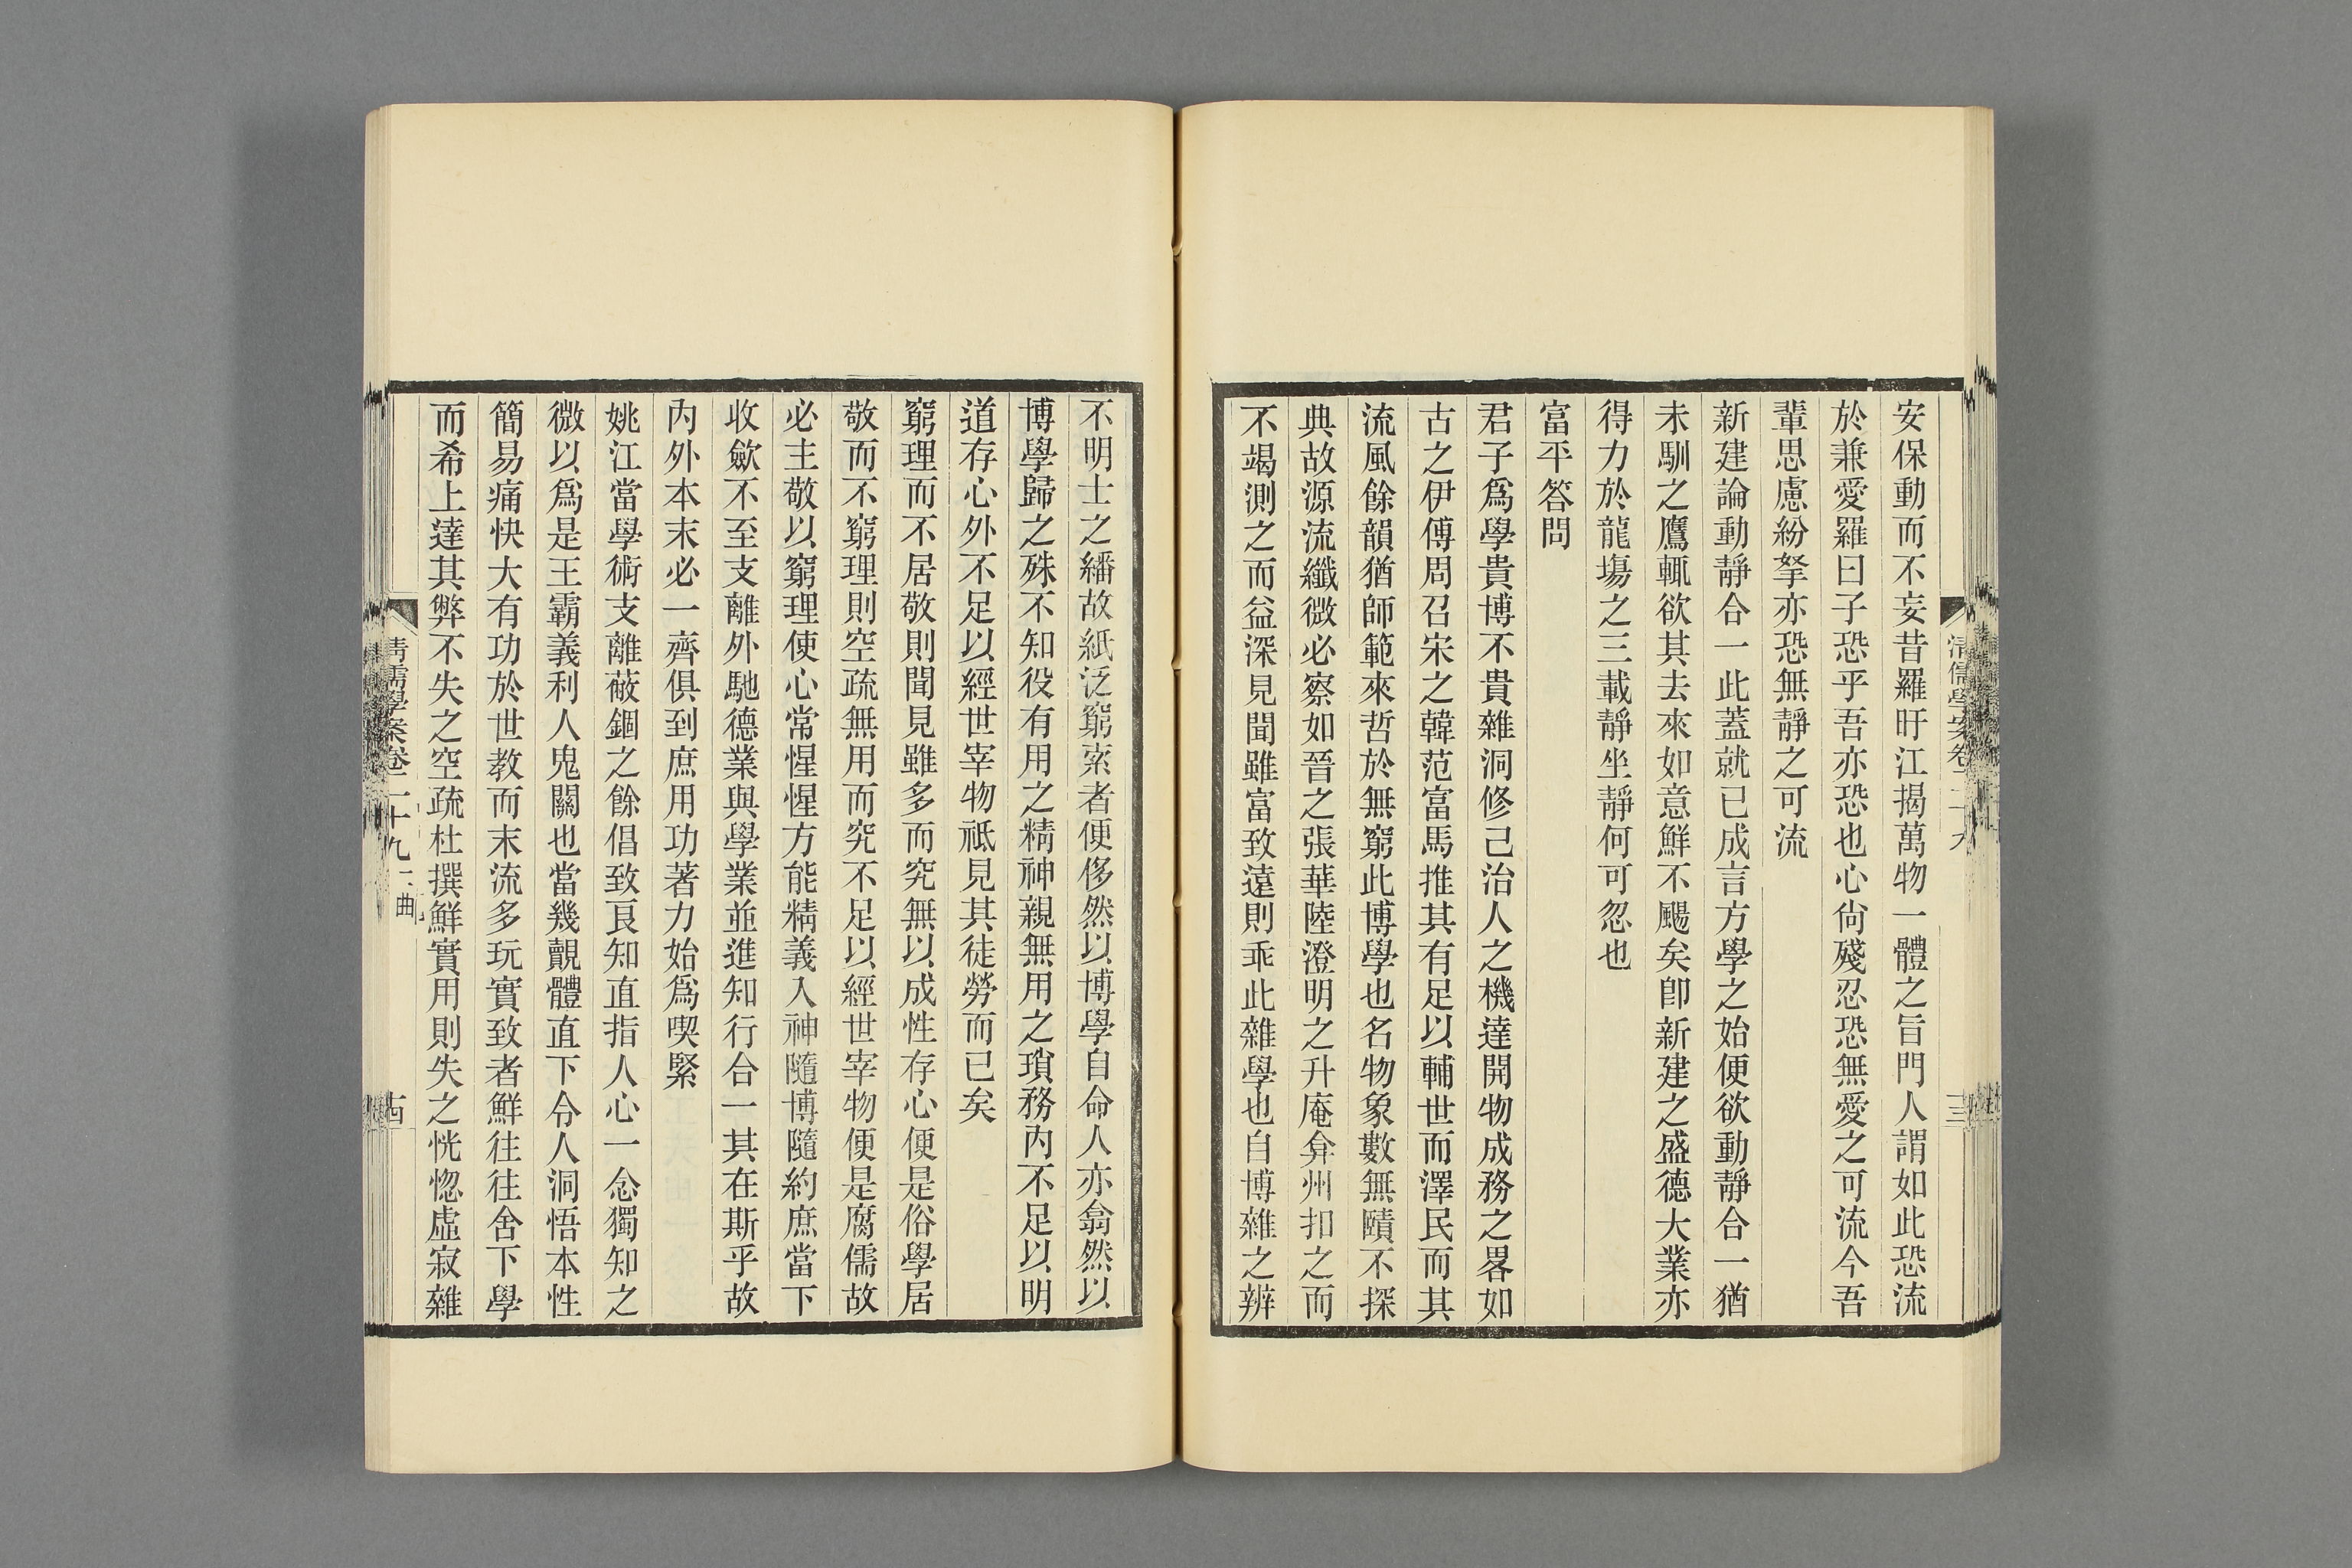 安保動而不妄昔羅旴江揭萬物一體之旨門人謂如此恐流
於兼愛羅曰子恐乎吾亦恐也心尙殘忍恐無愛之可流今吾
輩思慮紛拏亦恐無靜之可流
新建論動靜合一此蓋就已成言方學之始便欲動靜合一猶
未馴之鷹輒欲其去來如意鮮不颺矣卽新建之盛德大業亦
得力於龍塲之三載靜坐靜何可忽也
富平答問
君子爲學貴博不貴雜洞修己治人之機達開物成務之畧如
古之伊傅周召宋之韓范富馬推其有足以輔世而澤民而其
流風餘韻猶師範來哲於無窮此博學也名物象數無賾不探
典故源流纖微必察如晉之張華陸澄明之升庵弇州扣之而
不竭測之而益深見聞雖富致遠則乖此雜學也自博雜之辨
不明士之繙故紙泛窮索者便侈然以博學自命人亦翕然以
博學歸之殊不知役有用之精神親無用之瑣務內不足以明
道存心外不足以經世宰物祗見其徒勞而已矣
窮理而不居敬則聞見雖多而究無以成性存心便是俗學居
敬而不窮理則空疏無用而究不足以經世宰物便是腐儒故
必主敬以窮理使心常惺惺方能精義入神隨博隨約庶當下
收歛不至支離外馳德業與學業並進知行合一其在斯乎故
內外本末必一齊俱到庶用功著力始爲喫緊
姚江當學術支離蔽錮之餘倡致良知直指人心一念獨知之
微以爲是王霸義利人鬼關也當幾覿體直下令人洞悟本性
簡易痛快大有功於世教而末流多玩實致者鮮往往舍下學
而希上達其弊不失之空疏杜撰鮮實用則失之恍惚虛寂雜
清儒學案卷二十九 二曲
十四